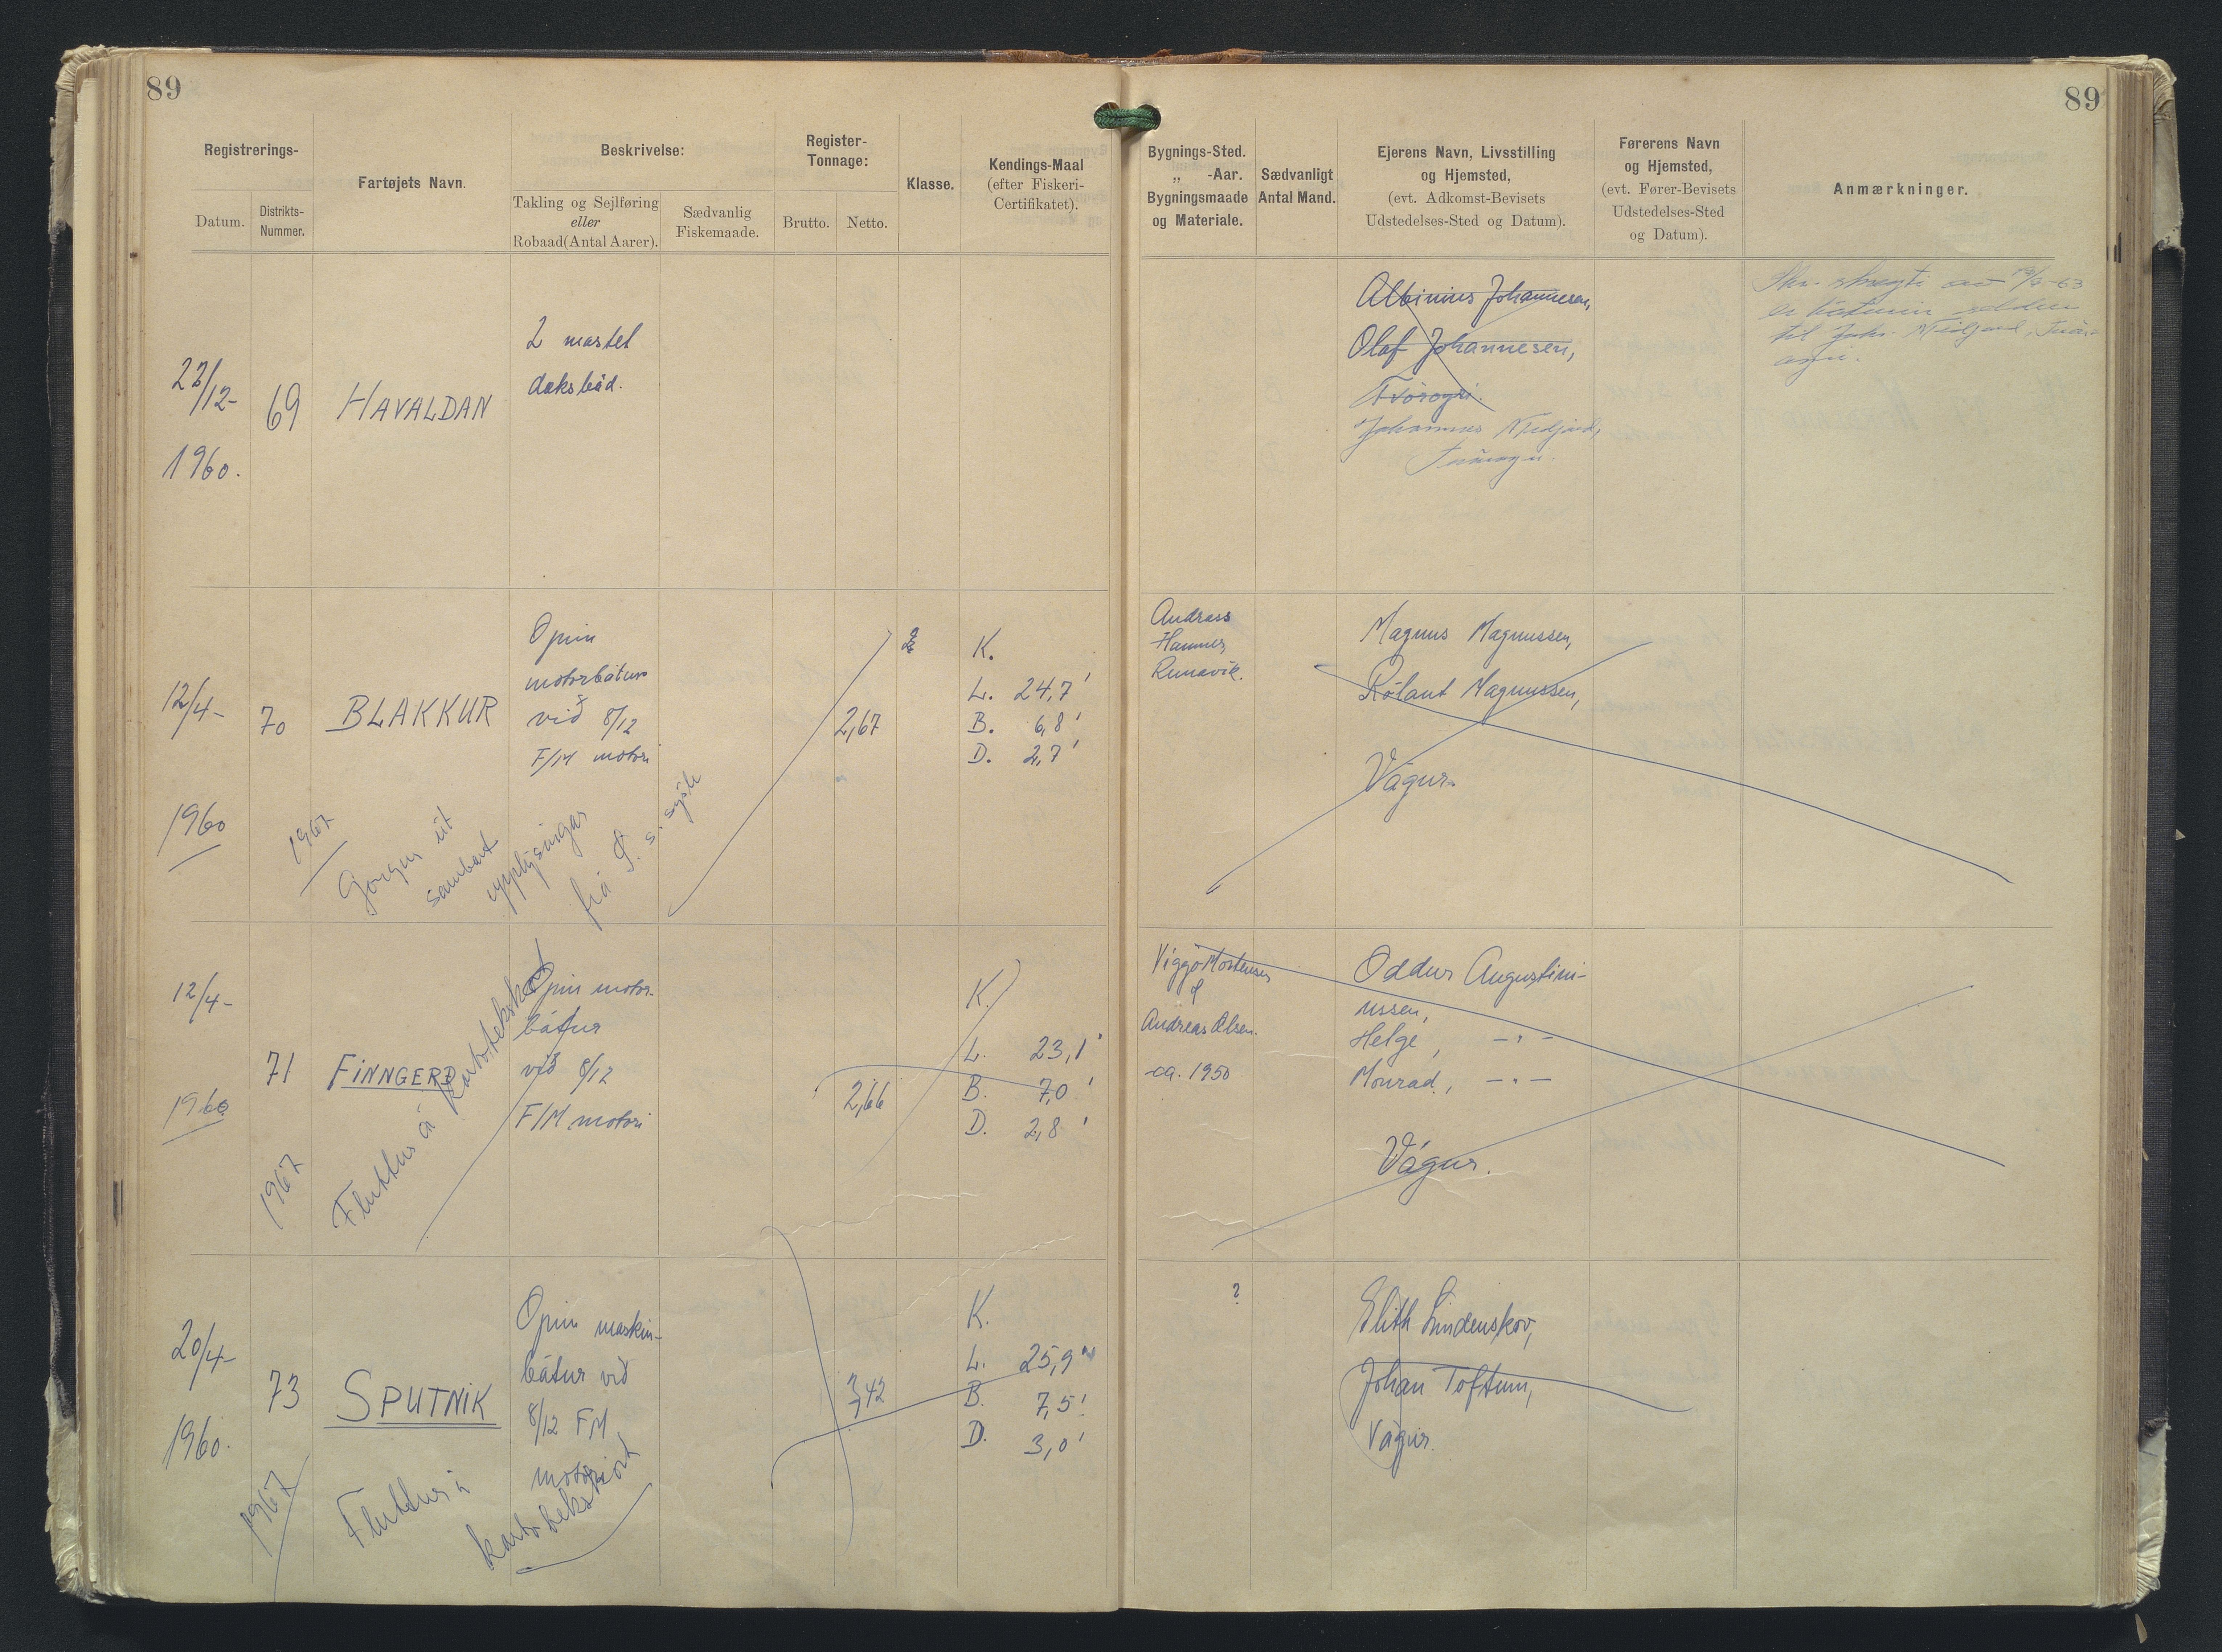 89
Registrerings-
Datum.
Distrikts-
Nummer.
Fartøjets Navn.
Beskrivelse:
Takling og Sejlføring
eller
Robaad (Antal Aarer).
Sædvanlig
Fiskemaade.
Register-
Tonnage:
Brutto.
Netto.
Klasse.
Kendings-Maal
(efter Fiskeri-
Certifikatet).
89
Bygnings-Sted.
„ -Aar.
Bygningsmaade
og Materiale.
Sædvanligt
Antal Mand.
Ejerens Navn, Livsstilling
og Hjemsted,
(evt. Adkomst-Bevisets
Udstedelses-Sted og Datum).
Førerens Navn
og Hjemsted,
(evt. Fører-Bevisets
Udstedelses-Sted
og Datum).
Anmærkninger.
/12-
1960.
69
HAVALDAN
2 mastet
daksbåd.
Albinius Johannesen,
Olaf Johannesen,
Johannus
til Johs.
12/4-
1960
70
BLAKKUR
Opin
motorbátur
við 8/12
F/M motori
2,67
K.
L. 24,7'
B. 6,8'
D. 2,7'
Andrass
Hammer,
Runavík.
Magnus Magnussen,
Rólant Magnussen,
Vágur.
1967
út
sambært
upplýsingar
frá S. s. sýslu
12/4-
1960
71
FINNGERD
Opin motor-
bátur
við 8/12
F/M motori
2,66
K.
L. 23,1'
B. 7,0'
D. 2,8'
Viggo Mortensen
&
Andreas Olsen.
ca. 1950
Oddur Augustini-
ussen,
Helge, -"-
Monrad, -"-
Vágur.
1967
Fluttur á kartotekskort
20/4-
1960.
73
SPUTNIK
Opin maskin-
bátur við
8/12 FM
motori
3,42
K.
L. 25,9"
B. 7,5'
D. 3,0'
?
Elith Lindenskov,
Johan Toftum,
Vágur.
1967
Fluttur á
kartotekskort